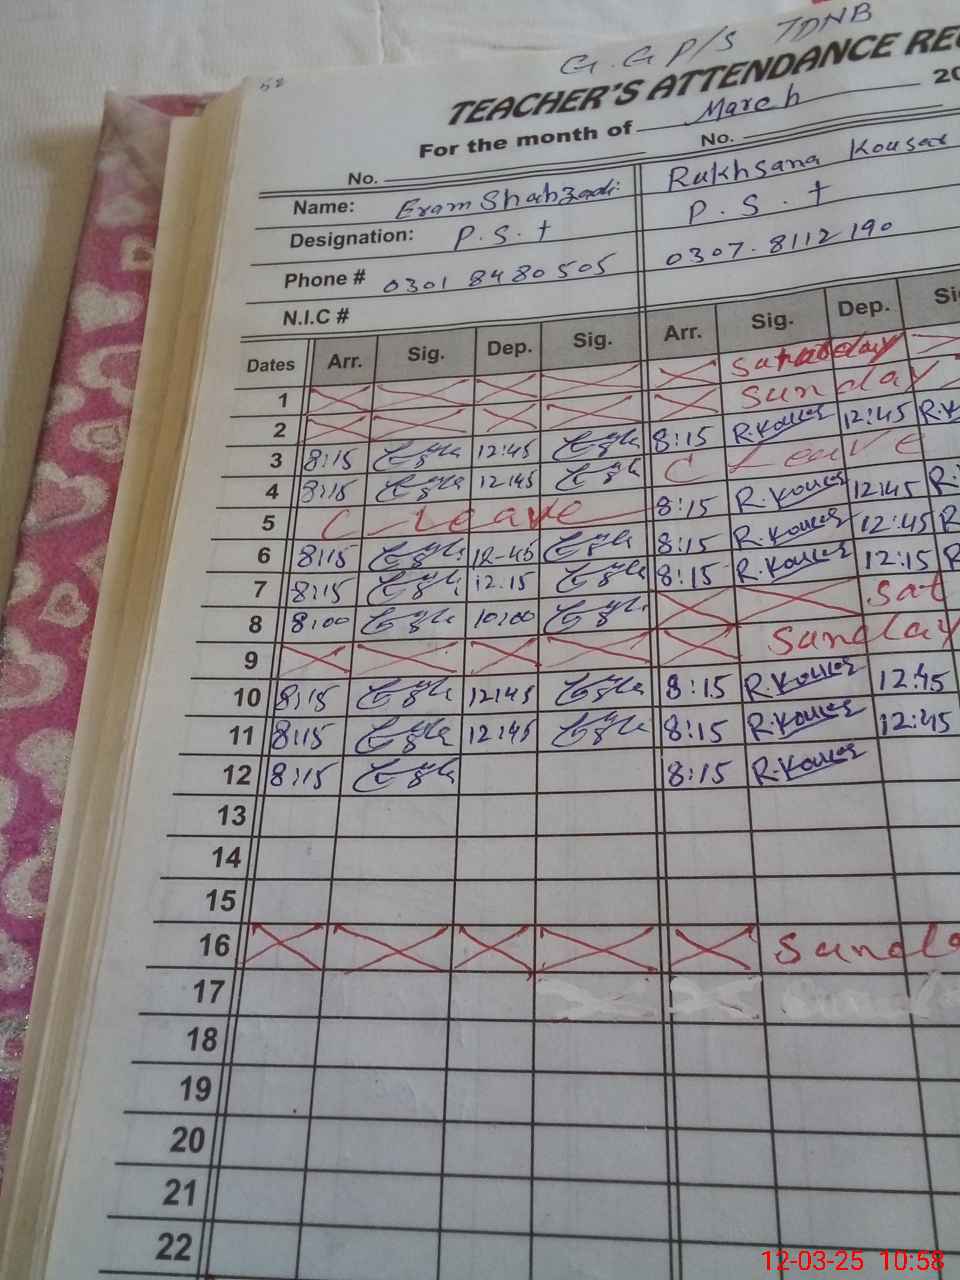 52
G. G P/S TDNB
TEACHER'S ATTENDANCE RE
For the month of March 20
No. No.
Name: Eram Shahzadi Rukhsana Kousar
Designation: P.S.t P.S.t
Phone # 0301 8480505 0307.8112190
N.I.C #
Dates Arr. Sig. Dep. Sig. Arr. Sig. Dep. Si
1 Saturday
2 Sunday
3 8:15 12:45 8:15 R.Kouser 12:45 R.K
4 8:15 12:45 C Leave
5 C Leave 8:15 R.Kouser 12:45 R.
6 8:15 12-45 8:15 R.Kouser 12:45 R
7 8:15 12.15 8:15 R.Kouser 12:15 R
8 8:00 10:00 Sat
9 Sunday
10 8:15 12:45 8:15 R.Kouser 12:45
11 8:15 12:45 8:15 R.Kouser 12:45
12 8:15 8:15 R.Kouser
13
14
15
16 Sunda
17
18
19
20
21
22
12-03-25 10:58